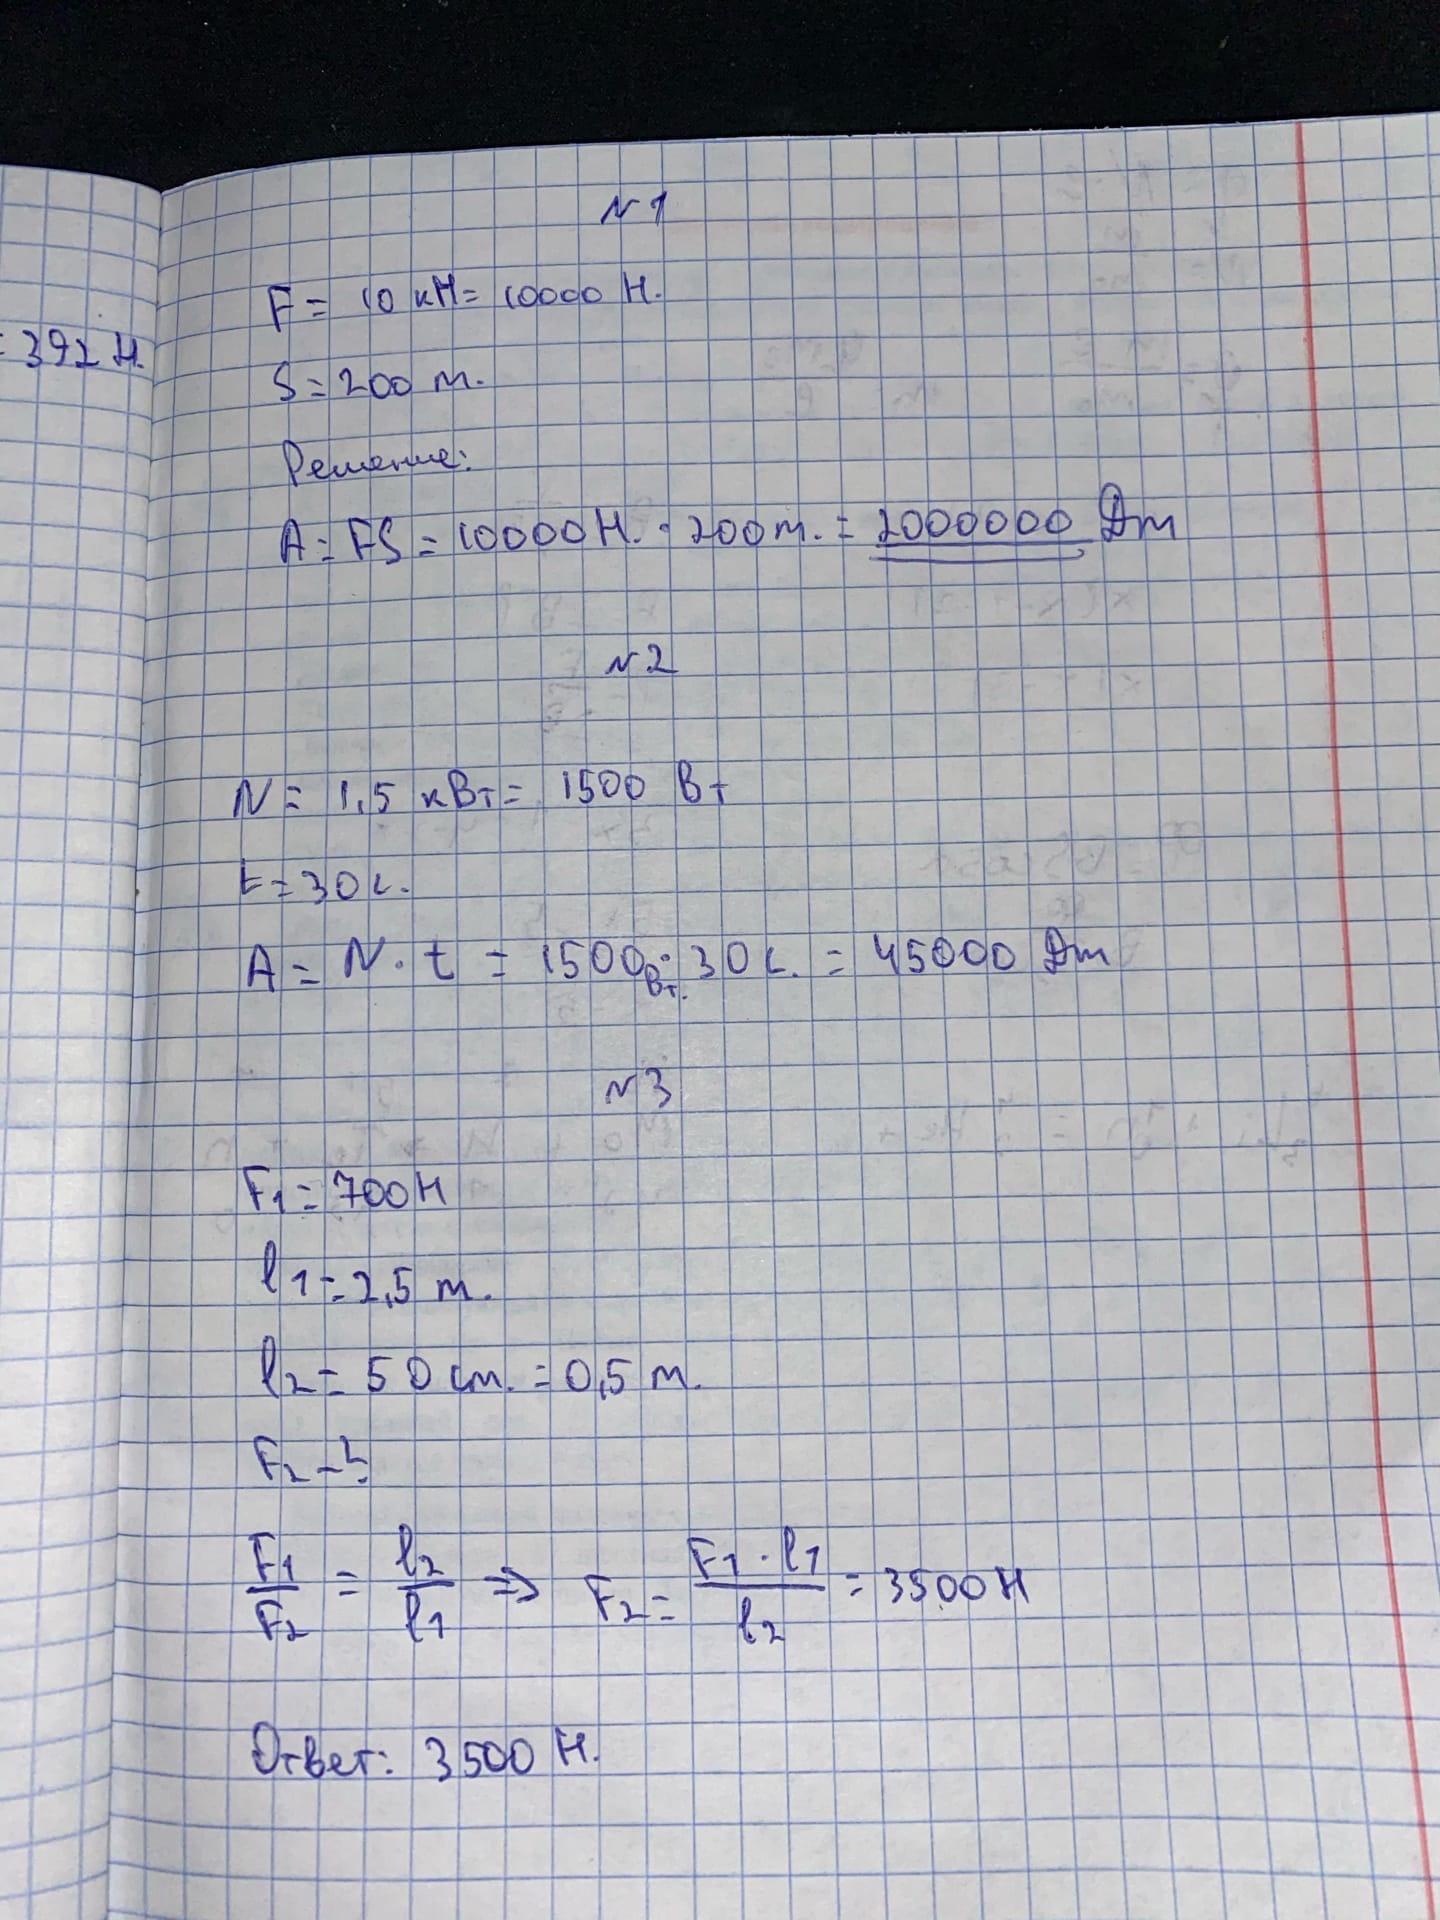 = 392 Н.
N 1
F = 10 кН = 10000 Н.
S = 200 m.
Решение:
A = FS = 10000 Н. · 200 m. = 2000000 Дж
N 2
N = 1,5 кВт = 1500 Вт
t = 30 с.
A = N · t = 1500 Вт. · 30 с. = 45000 Дж
N 3
F1 = 700 Н
l1 = 2,5 m.
l2 = 50 cm. = 0,5 m.
F2 - ?
F1/F2 = l2/l1 => F2 = F1 · l1/l2 = 3500 Н
Ответ: 3500 Н.